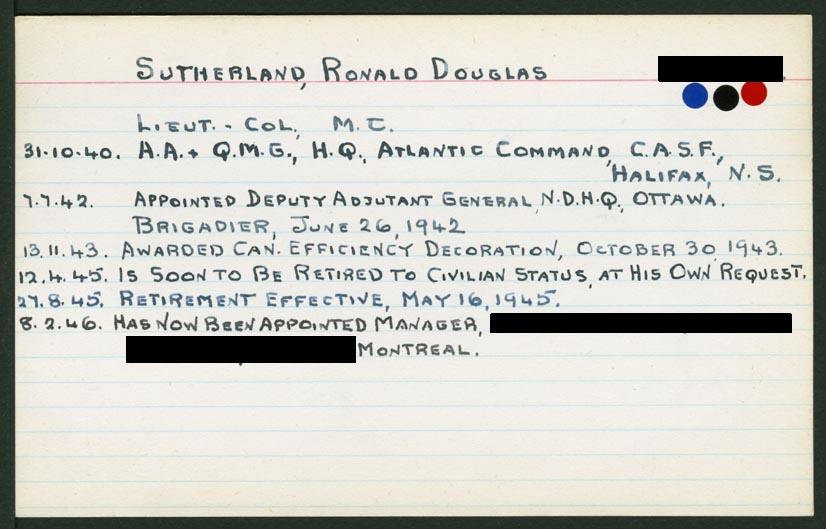 SUTHERLAND, RONALD DOUGLAS
LIEUT.-COL., M.C.
31.10.40. A.A. + Q.M.G., H.Q., ATLANTIC COMMAND, C.A.S.F.,
HALIFAX, N.S.
7.7.42. APPOINTED DEPUTY ADJUTANT GENERAL, N.D.H.Q., OTTAWA.
BRIGADIER, JUNE 26, 1942
13.11.43. AWARDED CAN. EFFICIENCY DECORATION, OCTOBER 30, 1943.
12.4.45. IS SOON TO BE RETIRED TO CIVILIAN STATUS, AT HIS OWN REQUEST.
27.8.45. RETIREMENT EFFECTIVE, MAY 16, 1945.
8.2.46. HAS NOW BEEN APPOINTED MANAGER,
MONTREAL.